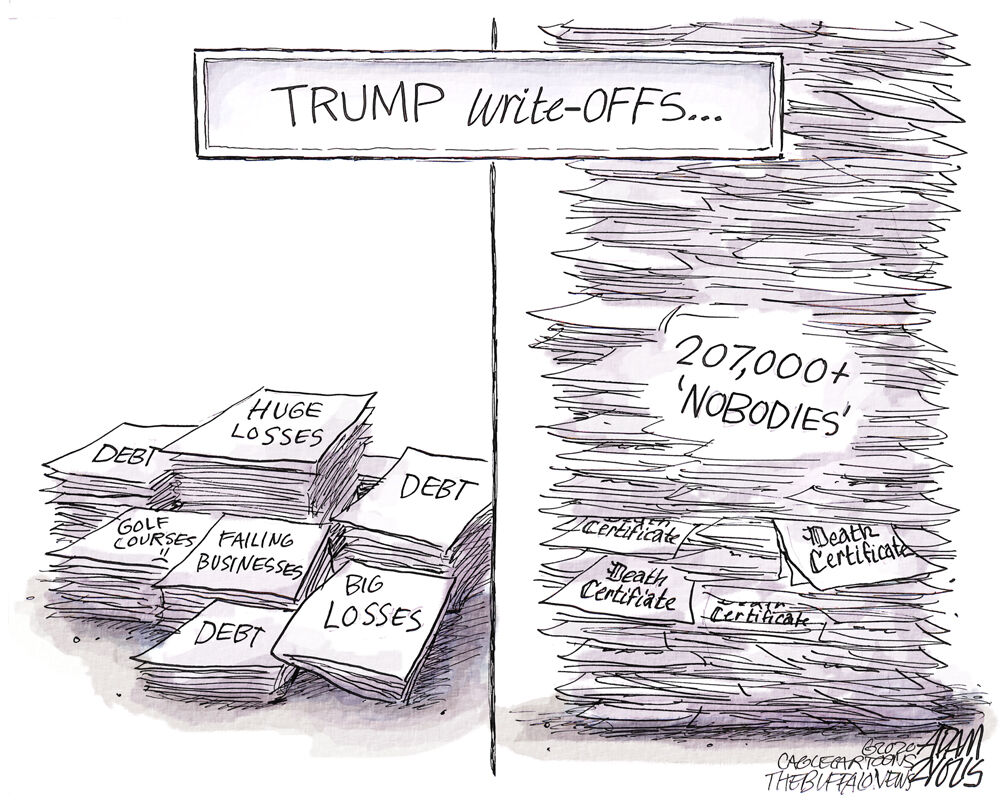 TRUMP write-OFFS...
HUGE
LOSSES
DEBT
DEBT
GOLF
COURSES
"
FAILING
BUSINESSES
BIG
LOSSES
DEBT
207,000+
'NOBODIES'
Certificate
Death
Certificate
Death
Certifiate
Death
Certificate
©2020
ADAM
ZYGLIS
CAGLECARTOONS
THE BUFFALO NEWS